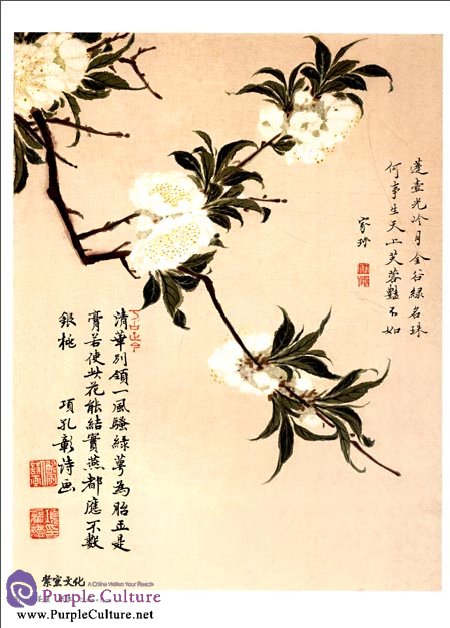 蓬壺光冷月金谷綠名珠
何事生天上芙蓉豔不如
家珍
清華別領一風騷綠萼為胎玉是
膏若使此花能結實燕都應不數
銀桃
項孔彰詩畫
紫宸文化 A China Within Your Reach
Purple Culture
www.PurpleCulture.net